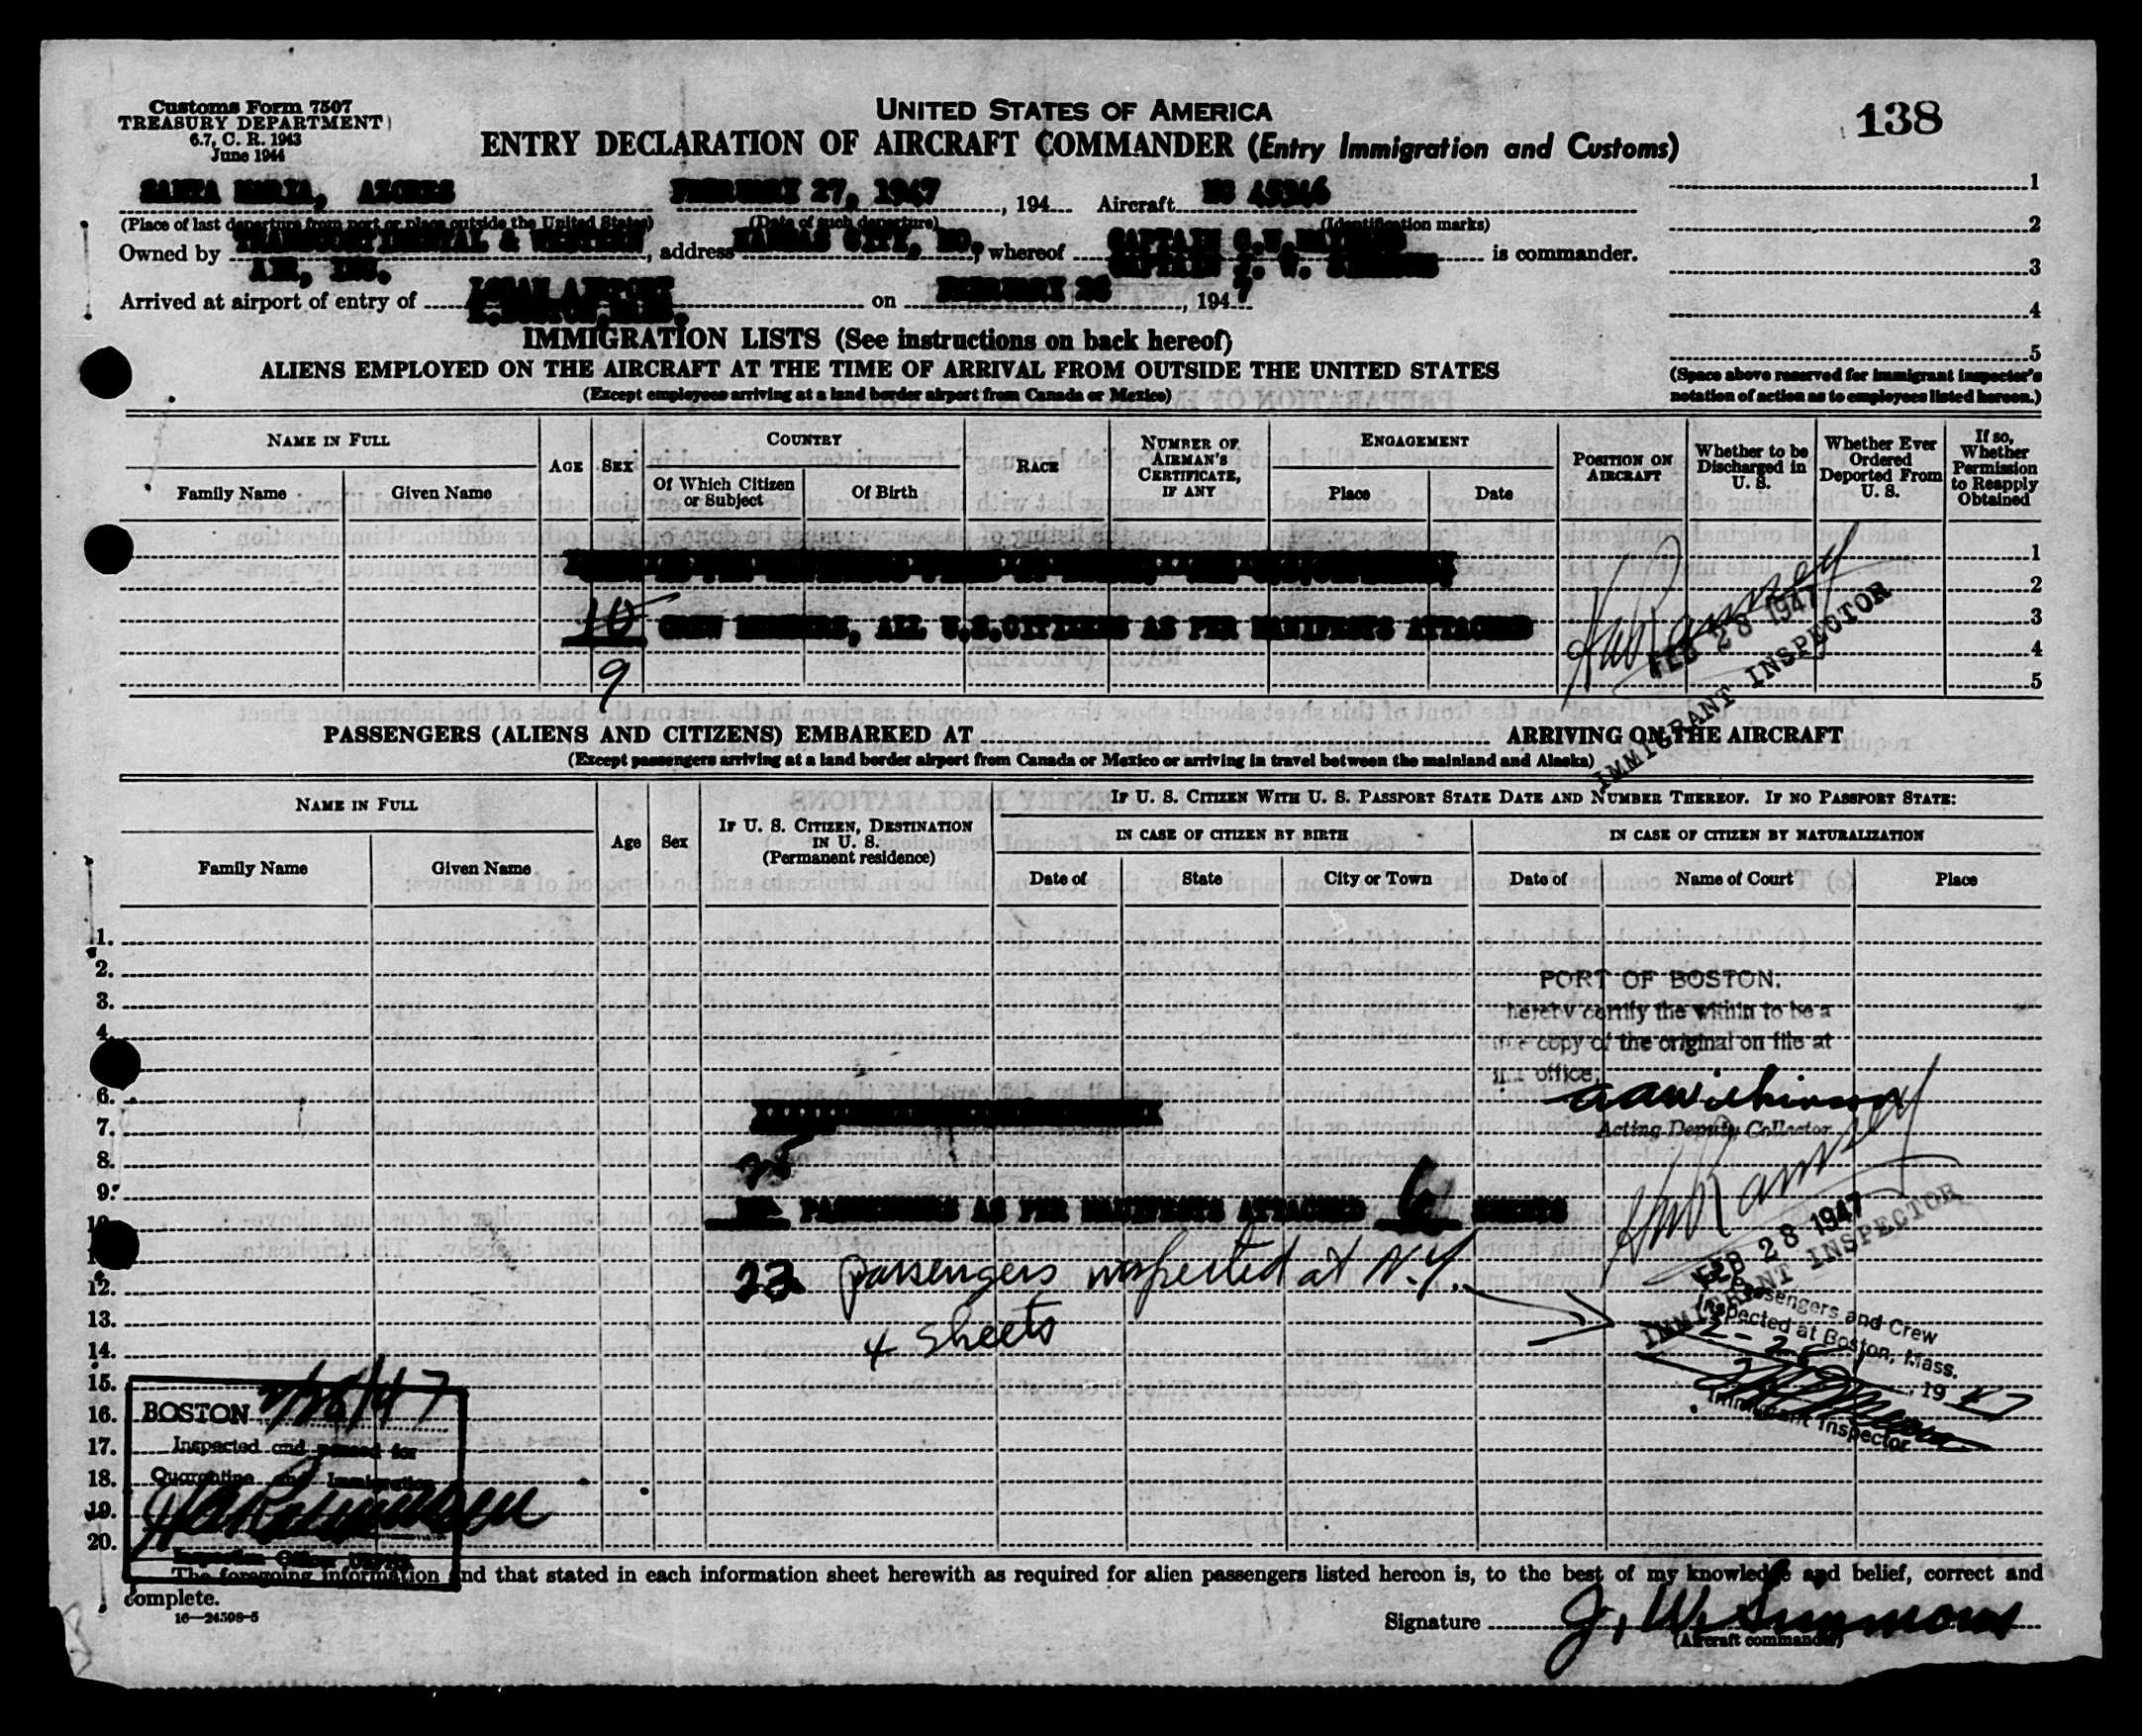 Customs Form 7507
TREASURY DEPARTMENT
6.7, C. R. 1943
June 1944
UNITED STATES OF AMERICA
138
ENTRY DECLARATION OF AIRCRAFT COMMANDER (Entry Immigration and Customs)
SANTA MARIA, AZORES FEBRUARY 27, 1947, 194 Aircraft NC 45346
(Place of last departure from port or place outside the United States) (Date of such departure) (Identification marks)
Owned by TRANSCONTINENTAL & WESTERN, address KANSAS CITY, MO., whereof CAPTAIN is commander.
AIR, INC. CAPTAIN J. W. SIMMONS
Arrived at airport of entry of LOGAN AIRPORT on FEBRUARY 28, 1947
1
2
3
4
5
(Space above reserved for immigrant inspector's
notation of action as to employees listed hereon.)
IMMIGRATION LISTS (See instructions on back hereof)
ALIENS EMPLOYED ON THE AIRCRAFT AT THE TIME OF ARRIVAL FROM OUTSIDE THE UNITED STATES
(Except employees arriving at a land border airport from Canada or Mexico)
NAME IN FULL
Family Name
Given Name
AGE
SEX
COUNTRY
Of Which Citizen
or Subject
Of Birth
RACE
NUMBER OF
AIRMAN'S
CERTIFICATE,
IF ANY
ENGAGEMENT
Place
Date
POSITION ON
AIRCRAFT
Whether to be
Discharged in
U. S.
Whether Ever
Ordered
Deported From
U. S.
If so,
Whether
Permission
to Reapply
Obtained
1
2
3
4
5
10 CREW MEMBERS, ALL U.S.CITIZENS AS PER MANIFESTS ATTACHED
9
Ramsey
FEB 28 1947
IMMIGRANT INSPECTOR
PASSENGERS (ALIENS AND CITIZENS) EMBARKED AT ARRIVING ON THE AIRCRAFT
(Except passengers arriving at a land border airport from Canada or Mexico or arriving in travel between the mainland and Alaska)
NAME IN FULL
Family Name
Given Name
Age
Sex
IF U. S. CITIZEN, DESTINATION
IN U. S.
(Permanent residence)
IF U. S. CITIZEN WITH U. S. PASSPORT STATE DATE AND NUMBER THEREOF. IF NO PASSPORT STATE:
IN CASE OF CITIZEN BY BIRTH
Date of
State
City or Town
IN CASE OF CITIZEN BY NATURALIZATION
Date of
Name of Court
Place
1.
2.
3.
4.
6.
7.
8.
9.
12.
13.
14.
15.
16.
17.
18.
19.
20.
PORT OF BOSTON.
hereby certify the within to be a
true copy of the original on file at
office.
Acting Deputy Collector
25
PASSENGERS AS PER MANIFESTS ATTACHED 6 SHEETS
23 passengers inspected at N.Y.
4 sheets
Ramsey
FEB 28 1947
IMMIGRANT INSPECTOR
Passengers and Crew
Inspected at Boston, Mass.
2-28, 1947
Immigrant Inspector
BOSTON 2/28/47
Inspected and passed for
Quarantine and Immigration
The foregoing information and that stated in each information sheet herewith as required for alien passengers listed hereon is, to the best of my knowledge and belief, correct and
complete.
16—24598-5
Signature J. W. Simmons
(Aircraft commander)